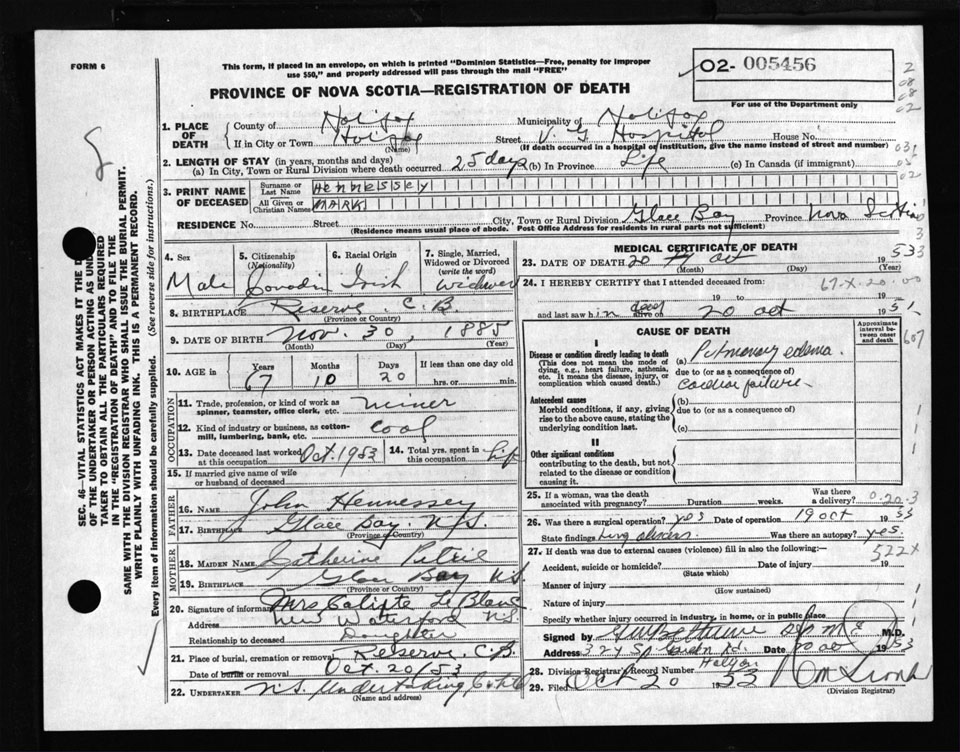 FORM 6
This form, if placed in an envelope, on which is printed "Dominion Statistics—Free, penalty for improper
use $50," and properly addressed will pass through the mail "FREE"
02- 005456
For use of the Department only
PROVINCE OF NOVA SCOTIA—REGISTRATION OF DEATH
1. PLACE OF DEATH
County of Halifax Municipality of Halifax
If in City or Town Halifax (Name) Street V. G. Hospital House No.
(If death occurred in a hospital or institution, give the name instead of street and number)
2. LENGTH OF STAY (in years, months and days)
(a) In City, Town or Rural Division where death occurred 25 days (b) In Province Life (c) In Canada (if immigrant)
3. PRINT NAME OF DECEASED
Surname or Last Name HENNESSEY
All Given or Christian Names MARK
RESIDENCE No. Street City, Town or Rural Division Glace Bay Province Nova Scotia
(Residence means usual place of abode. Post Office Address for residents in rural parts not sufficient)
4. Sex Male
5. Citizenship (Nationality) Canadian
6. Racial Origin Irish
7. Single, Married, Widowed or Divorced (write the word) Widower
8. BIRTHPLACE Reserve C.B.
(Province or Country)
9. DATE OF BIRTH Nov. 30, 1885
(Month) (Day) (Year)
10. AGE in Years 67 Months 10 Days 20 If less than one day old hrs. or min.
OCCUPATION
11. Trade, profession, or kind of work as spinner, teamster, office clerk, etc. miner
12. Kind of industry or business, as cotton-mill, lumbering, bank, etc. Coal
13. Date deceased last worked at this occupation Oct. 1953
14. Total yrs. spent in this occupation Life
15. If married give name of wife or husband of deceased
FATHER
16. NAME John Hennessey
17. BIRTHPLACE Glace Bay. N.S.
(Province or Country)
MOTHER
18. MAIDEN NAME Catherine
19. BIRTHPLACE Glace Bay N.S.
(Province or Country)
20. Signature of informant Mrs Calixte LeBlanc
Address New Waterford N.S.
Relationship to deceased Daughter
21. Place of burial, cremation or removal Reserve C.B.
Date of burial or removal Oct. 20/53
22. UNDERTAKER N.S. Undertaking
(Name and address)
MEDICAL CERTIFICATE OF DEATH
23. DATE OF DEATH 20 Oct 1953
(Month) (Day)
24. I HEREBY CERTIFY that I attended deceased from:
19 to 19
and last saw him alive on dead 20 Oct 195
CAUSE OF DEATH
Approximate interval between onset and death
I
Disease or condition directly leading to death
(This does not mean the mode of dying, e.g., heart failure, asthenia, etc. It means the disease, injury, or complication which caused death.)
(a) Pulmonary edema
due to (or as a consequence of)
Cardiac failure
Antecedent causes
Morbid conditions, if any, giving rise to the above cause, stating the underlying condition last.
(b)
due to (or as a consequence of)
(c)
II
Other significant conditions
contributing to the death, but not related to the disease or condition causing it.
25. If a woman, was the death associated with pregnancy? Duration weeks. Was there a delivery?
26. Was there a surgical operation? yes Date of operation 19 Oct 1953
State findings lung abscess Was there an autopsy? yes.
27. If death was due to external causes (violence) fill in also the following:—
Accident, suicide or homicide? Date of injury 19
(State which)
Manner of injury
(How sustained)
Nature of injury
Specify whether injury occurred in industry, in home, or in public place
Signed by M.D.
Address 324 Sp. Garden Rd. Halifax Date 20 Oct 1953
28. Division Registrar's Record Number
29. Filed Oct 20 1953
(Division Registrar)
SEC. 46—VITAL STATISTICS ACT MAKES IT THE D
OF THE UNDERTAKER OR PERSON ACTING AS UND
TAKER TO OBTAIN ALL THE PARTICULARS REQUIRED
IN THE "REGISTRATION OF DEATH" AND TO FILE THE
SAME WITH THE DIVISION REGISTRAR WHO SHALL ISSUE THE BURIAL PERMIT.
WRITE PLAINLY WITH UNFADING INK. THIS IS A PERMANENT RECORD.
Every item of information should be carefully supplied. (See reverse side for instructions.)